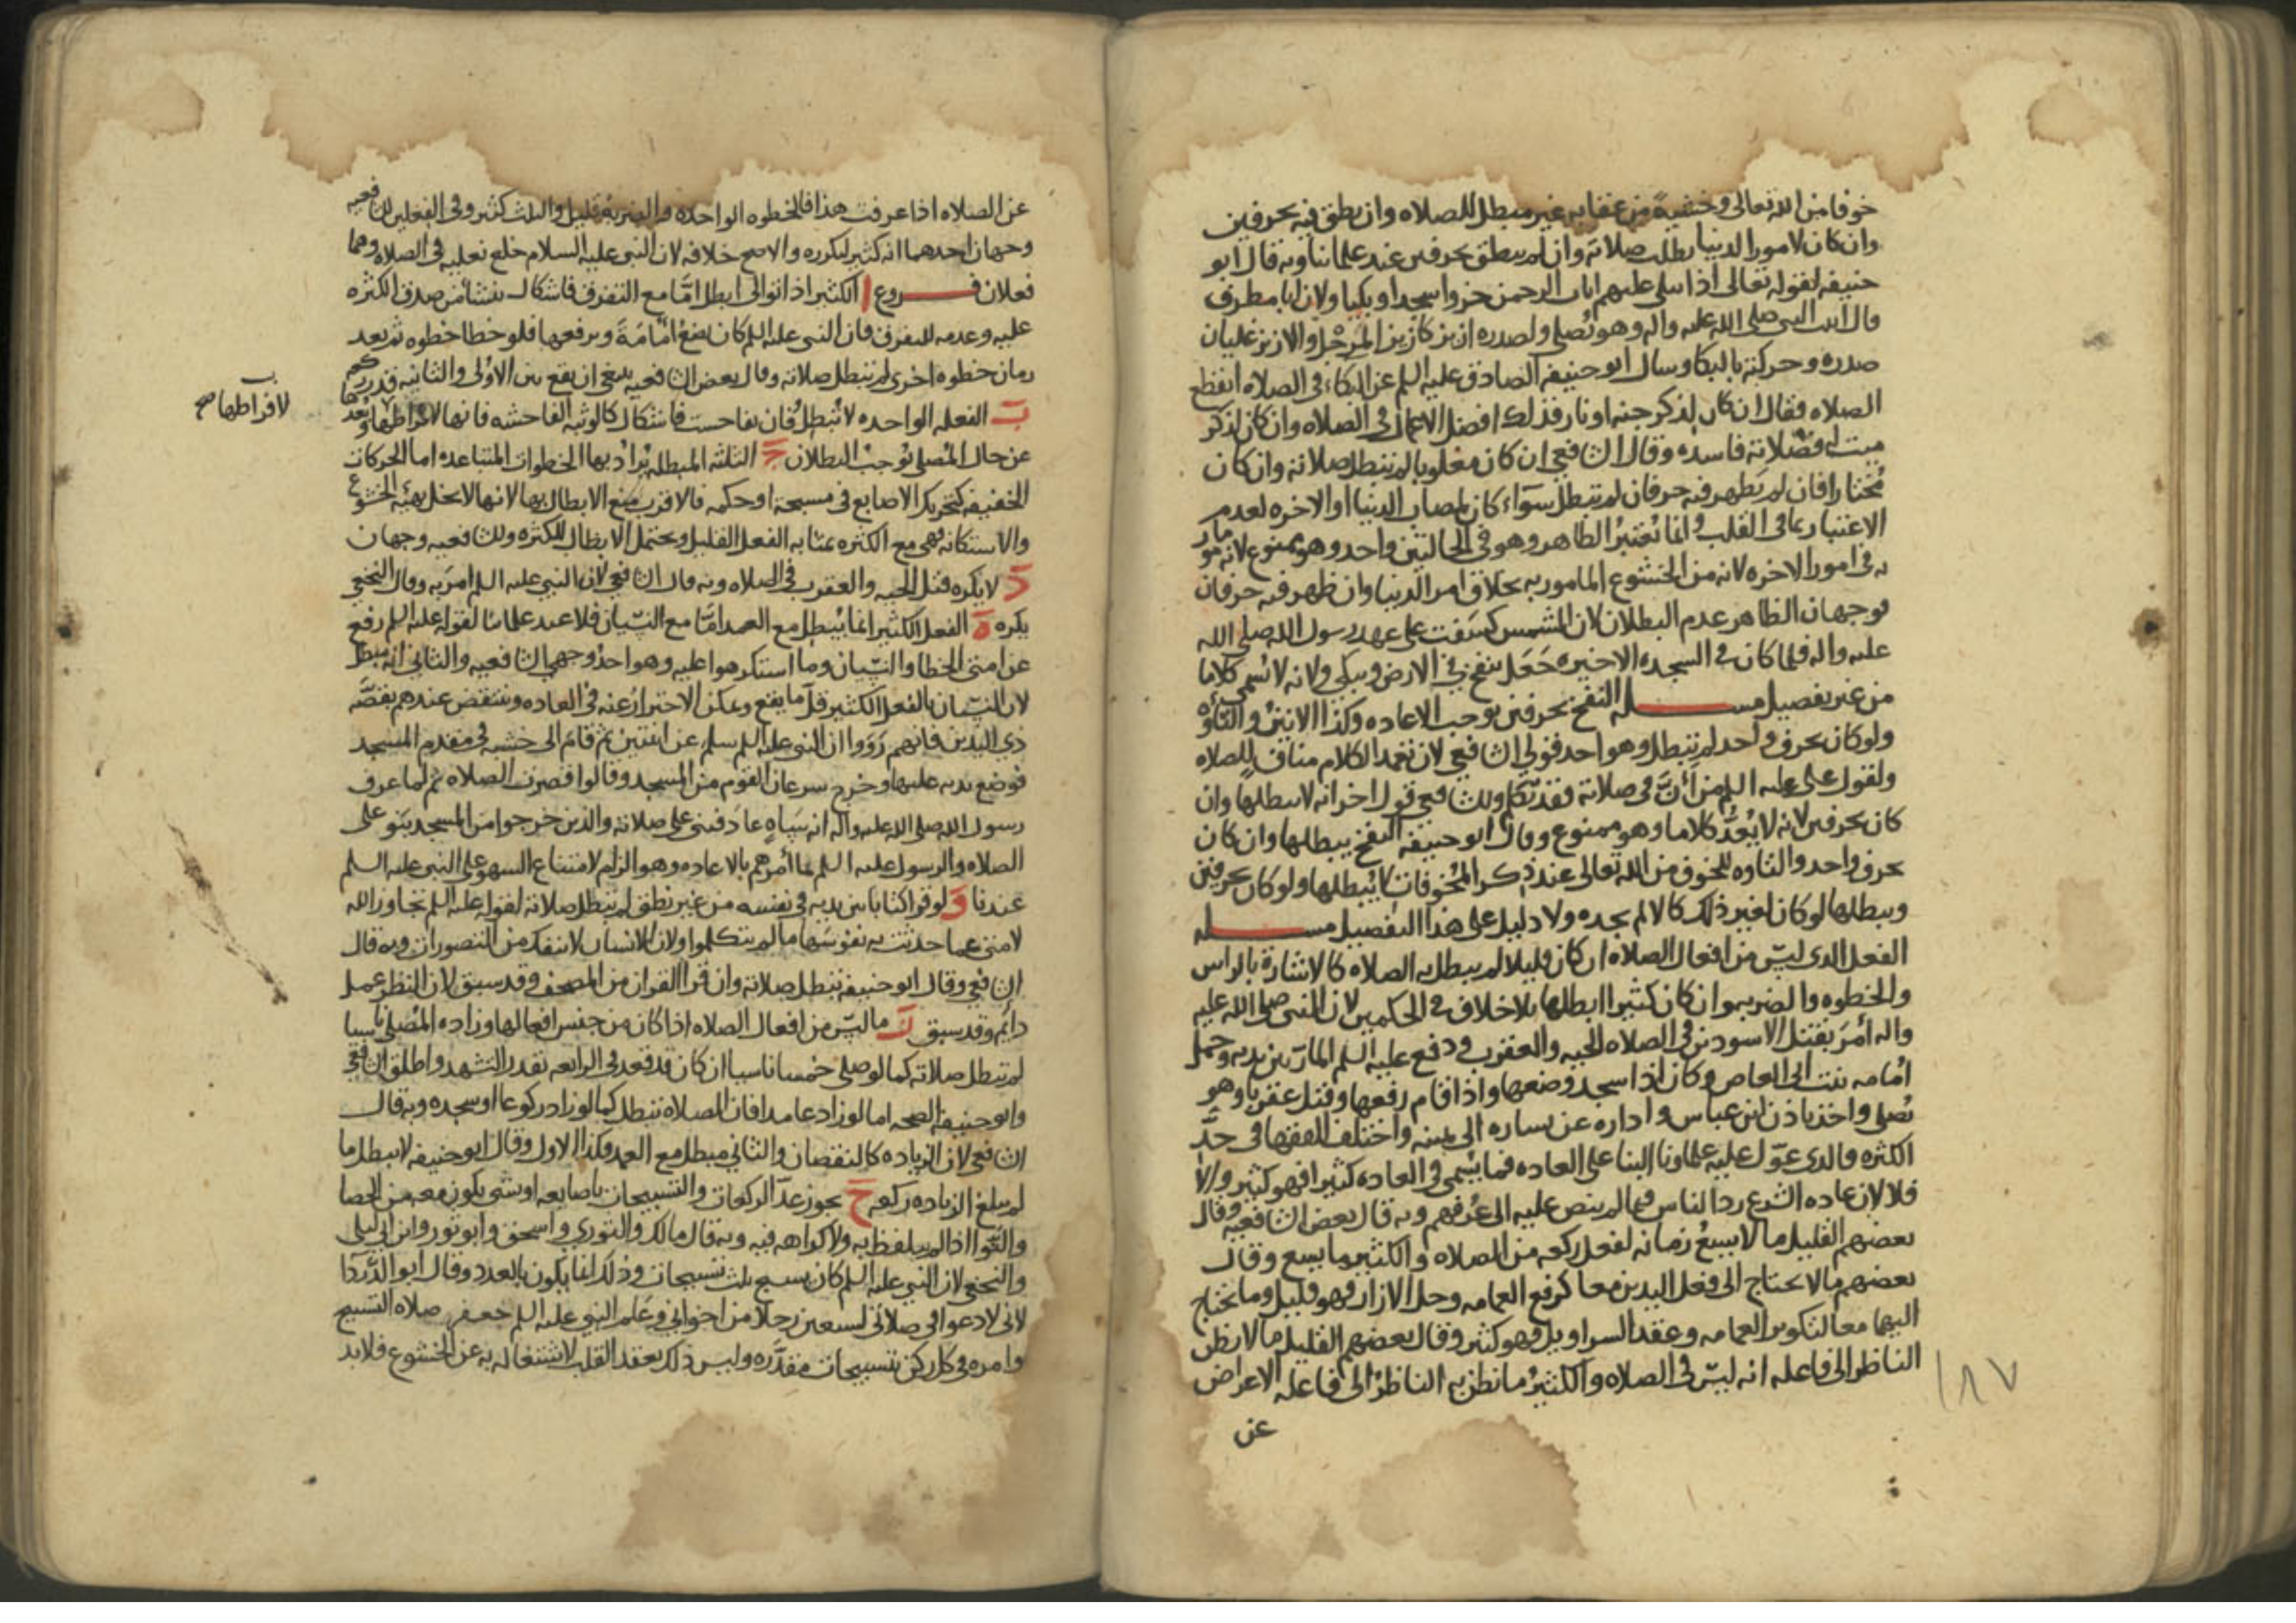 خوفا من الله تعالى وخشية من عقابه غير مبطل للصلاه وان نطق فيه بحرفين
وان كان لامور الدنيا بطلت صلاته وان لم ينطق بحرفين عند علمائنا وبه قال ابو
حنيفه لقوله تعالى اذا تتلى عليهم ايات الرحمن خروا سجدا وبكيا ولان ابا مطرف
قال اتيت النبي صلى الله عليه واله وهو يُصلي ولصدره ازيز كازيز المِرْجَل والازيز غليان
صدره وحركته بالبكا وسال ابو حنيفه الصادق عليه السلم عن البكاء في الصلاه ايقطع
الصلاه فقال ان كان لذكر جنه او نار فذلك افضل الاعمال في الصلاه وان كان لذكر
ميت له فصلاته فاسده وقال الشافعي ان كان مغلوبا لم تبطل صلاته وان كان
مُختارا فان لم يَظهر فيه حرفان لم تبطل سَواء كان لمصاب الدنيا او الاخره لعدم
الاعتبار بما في القلب وانما يُعتبر الظاهر وهو في الحالتين واحد وهو ممنوع لانه مامور
به في امور الاخره لانه من الخشوع المامور به بخلاف امر الدنيا وان ظهر فيه حرفان
فوجهان الظاهر عدم البطلان لان الشمس كسفت على عهد رسول الله صلى الله
عليه واله فلما كان في السجده الاخيره جَعَل ينفخ في الارض ويبكي ولانه لا يُسمى كلاما
من غير تفصيل مسله النفخ بحرفين يوجب الاعاده وكذا الانين والتاوّه
ولو كان بحرف واحد لم تبطل وهو احد قولي الشافعي لان تعمد الكلام مناف للصلاه
ولقول علي عليه السلم من أَنَّ في صلاته فقد تكلم وللشافعي قول اخر انه لا يبطلها وان
كان بحرفين لانه لا يُعَدُّ كلاما وهو ممنوع وقال ابو حنيفه النفخ يبطلها وان كان
بحرف واحد والتاوه للخوف من الله تعالى عند ذكر المُخوفات لا يُبطلها ولو كان بحرفين
ويبطلها لو كان لغير ذلك كالالم يجده ولا دليل على هذا التفصيل مسله
الفعل الذي ليس من افعال الصلاه ان كان قليلا لم يبطل به الصلاه كالاشارة بالراس
والخطوه والضربه وان كان كثيرا ابطلها بلا خلاف في الحكمين لان النبي صلى الله عليه
واله أمَرَ بقتل الاسودين في الصلاه الحيه والعقرب ودفع عليه السلم المارّ بين يديه وحمل
امُامه بنت ابي العاص وكان اذا سجد وضعها واذا قام رفعها وقتل عقربا وهو
يُصلي واخذ باذن ابن عباس واداره عن يساره الى يمينه واختلف الفقها في حدّ
الكثره فالذي عوّل عليه علماونا البنا على العاده فما يُسمى في العاده كثيرا فهو كثير والا
فلا لان عاده الشرع رد الناس فيما لم ينص عليه الى عُرفهم وبه قال بعض الشافعيه وقال
بعضهم القليل ما لا يسع زمانه لفعل ركعه من الصلاه والكثير ما يسع وقال
بعضهم ما لا يحتاج الى فعل اليدين معا كرفع العمامه وحل الازار فهو قليل وما يحتاج
اليهما معا كتكوير العمامه وعقد السراويل فهو كثير وقال بعضهم القليل ما لا يظن
الناظر الى فاعله انه ليس في الصلاه والكثير ما يظن به الناظر الى فاعله الاعراض
عن
١٨٧
عن الصلاه اذا عرفت هذا فالخطوه الواحده والضربه قليل والثلث كثير وفي الفعلين للشافعيه
وجهان احدهما انه كثير لتكرره والاصح خلافه لان النبي عليه السلام خلع نعليه في الصلاه وهما
فعلان فروع ا الكثير اذا توالى ابطل امّا مع التفرق فاشكال ينشا من صدق الكثره
عليه وعدمه للتفرق فان النبي عليه السلم كان يضع امُامَةَ ويرفعها فلو خطا خطوه ثم بعد
زمان خطوه اخرى لم تبطل صلاته وقال بعض الشافعيه ينبغي ان يقع بين الاُولى والثانيه قدر ركعه
ب الفعله الواحده لا تُبطل فان تفاحست فاشكال كالوثبه الفاحشه فانها لافراطها وبُعدها
لافراطها صح
عن حال المُصلي تُوجب البطلان ج الثلثه المبطله يُرادُ بها الخطوات المتباعده اما الحركات
الخفيفه كتحريك الاصابع في مسبحة او حكه فالاقرب منع الابطال بها لانها لا تخل بهيئه الخشوع
والاستكانه فهي مع الكثره بمثابه الفعل القليل ويحتمل الابطال للكثره وللشافعيه وجهان
د لا يكره قتل الحيه والعقرب في الصلاه وبه قال الشافعي لان النبي عليه السلم امرَ به وقال النخعي
يكره ه الفعل الكثير انما يُبطل مع العمد امّا مع النسيان فلا عند علمائنا لقوله عليه السلم رفع
عن امتي الخطا والنسيان وما استكرهوا عليه وهو احد وجهي الشافعيه والثاني انه مبطل
لان النسيان بالفعل الكثير قلّ ما يقع ويمكن الاحتراز عنه في العاده وينتقض عندهم بقصَّه
ذي اليدين فانهم رَوَوا ان النبي عليه السلم سلم عن اثنتين ثم قامَ الى خشبه في مقدم المسجد
فوضع يديه عليها وخرج سرعان القوم من المسجد وقالوا قصرت الصلاه ثم لما عرف
رسول الله صلى الله عليه واله انه سَاهٍ عادَ فبنى على صلاته والذين خرجوا من المسجد بنوا على
الصلاه والرسول عليه السلم ما أمرهم بالاعاده وهو الزام لامتناع السهو على النبي عليه السلم
عندنا و لو قرا كتابا بين يديه في نفسه من غير نطق لم تبطل صلاته لقوله عليه السلم تجاوز الله
لامتي عما حدثت به نفوسَها ما لم يتكلموا ولان الانسان لا ينفك من التصورات وبه قال
الشافعي وقال ابو حنيفه تبطل صلاته وان قرا القران من المصحف وقد سبق لان النظر عمل
دائم وقد سبق ز ما ليس من افعال الصلاه اذا كان من جنس افعالها وزاده المُصلي ناسيا
لم تبطل صلاته كما لو صلى خمسا ناسيا ان كان قد قعد في الرابعه بقدر التشهد واطلق الشافعي
وابو حنيفه الصحه اما لو زاد عامدا فان الصلاه تبطل كما لو زاد ركوعا او سجده وبه قال
الشافعي لان الزياده كالنقصان والثاني مبطل مع العمد وكذا الاول وقال ابو حنيفه لا يبطل ما
لم يبلغ الزياده ركعه ح يجوز عدّ الركعات والتسبيحات باصابعه او شي يكون معه من الحصا
والنَّوا اذا لم يتلفظ به ولا كراهه فيه وبه قال مالك والثوري واسحق وابو ثور وابن ابي ليلى
والنخعي لان النبي عليه السلم كان يسبح ثلث تسبيحات وذلك انما يكون بالعدد وقال ابو الدَّردَا
لاني لادعوا في صلاتي لسبعين رجلا من اخواني وعَلم النبي عليه السلم جعفر صلاه التسبيح
وامره في كل ركن بتسبيحات مقدّره وليس ذلك بعقد القلب لاشتغاله به عن الخشوع فلا بد